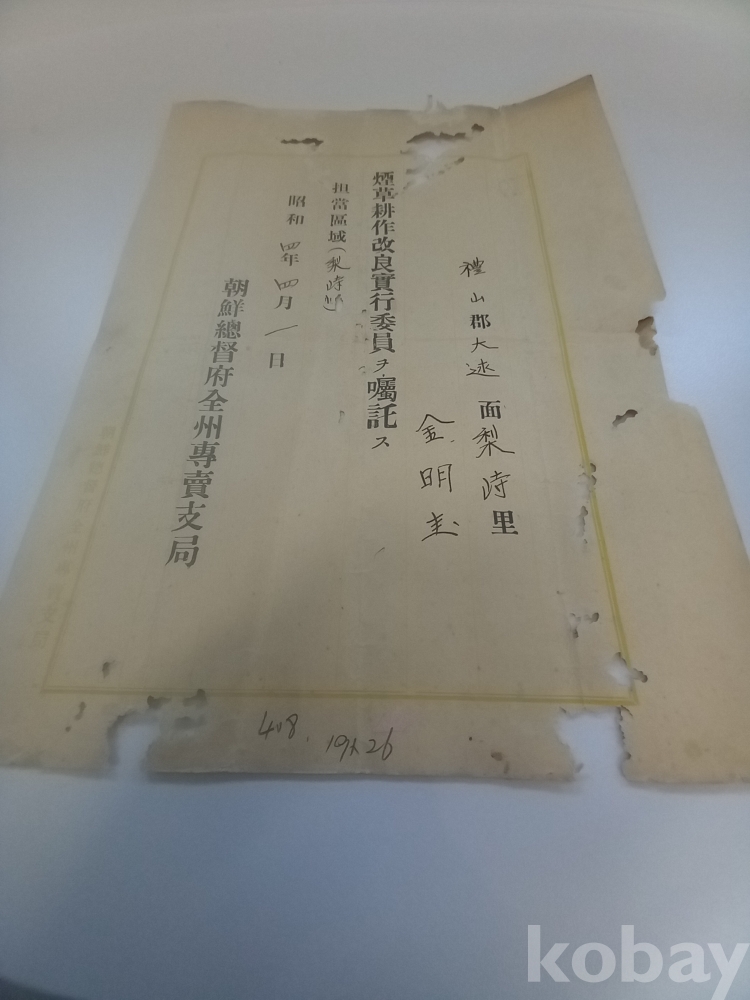 禮山郡大述面梨峙里
金明圭
煙草耕作改良實行委員ヲ囑託ス
担當區域(梨峙里)
昭和四年四月一日
朝鮮總督府全州專賣支局
408. 19x26
kobay